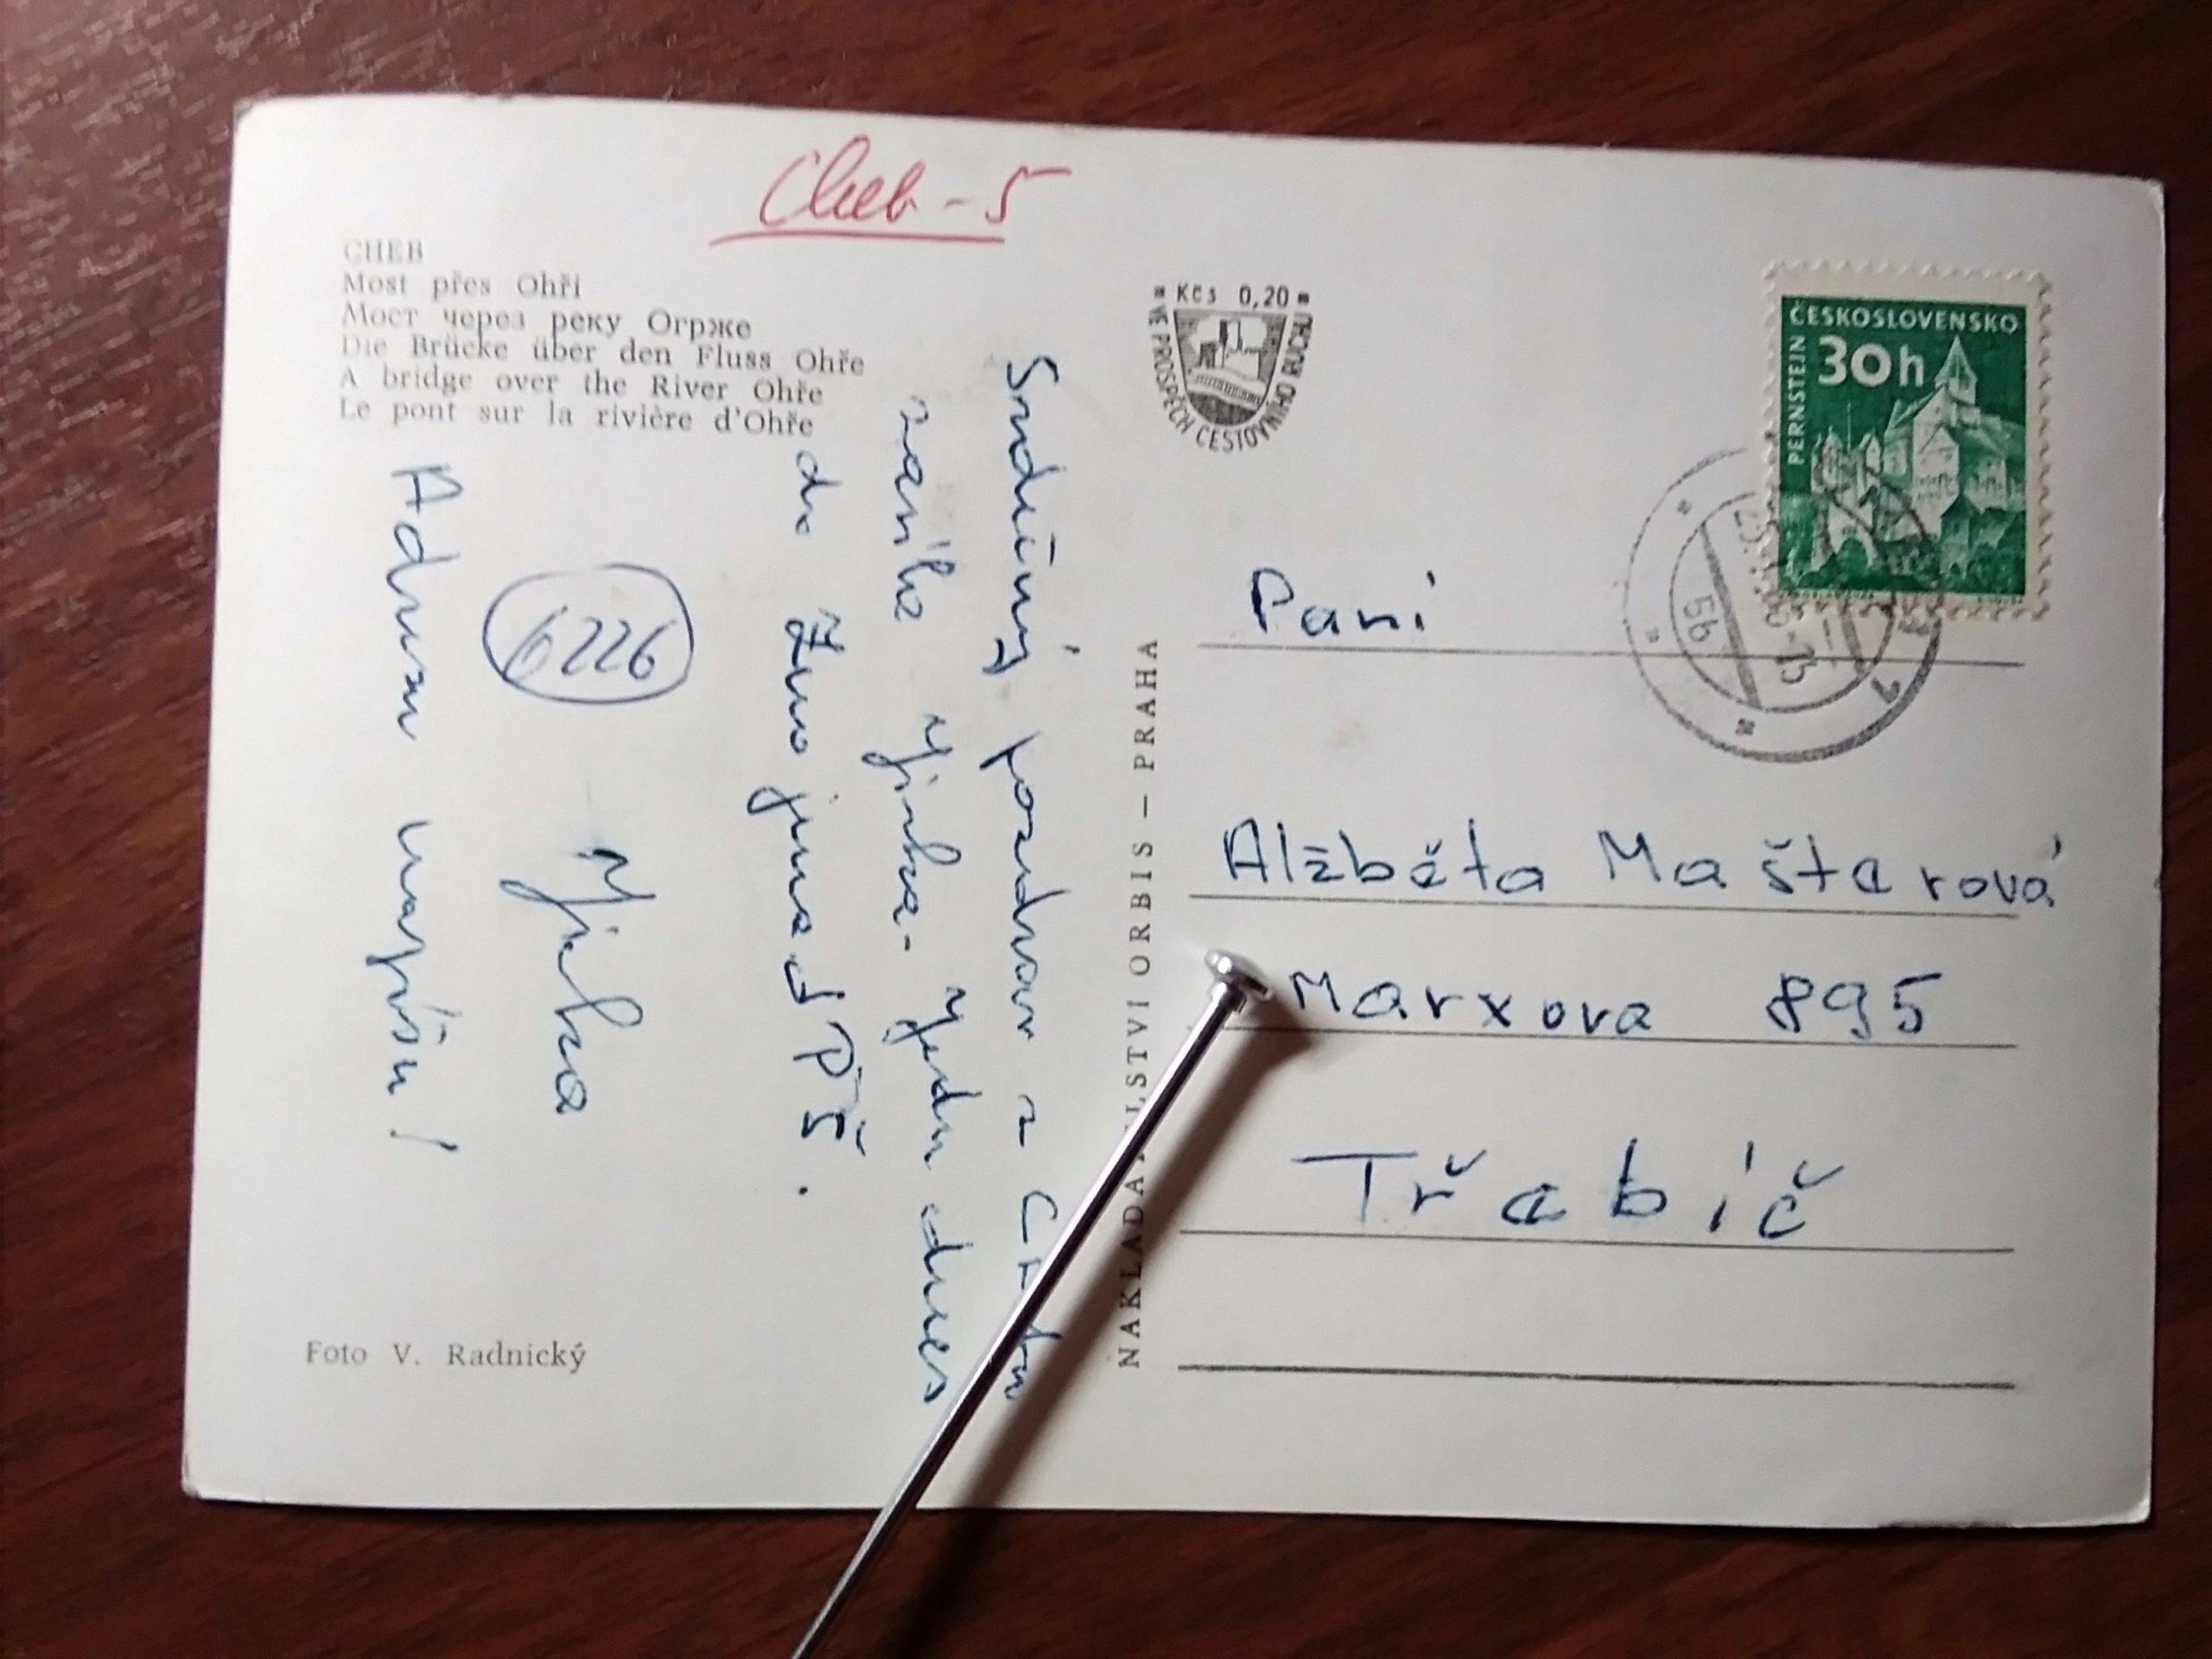 Cheb - 5
CHEB
Most přes Ohři
Мост через реку Огрже
Die Brücke über den Fluss Ohře
A bridge over the River Ohře
Le pont sur la rivière d'Ohře
Srdečný pozdrav z
zasílá Jirka. Jedu dnes
do Znojma d PŠ.
6226
Jirka
Adresu napíšu!
Foto V. Radnický
NAKLADATELSTVÍ ORBIS — PRAHA
Kčs 0,20
VE PROSPĚCH CESTOVNÍHO RUCHU
ČESKOSLOVENSKO
30h
PERNŠTEJN
5b
1
Paní
Alžběta Maštarová
Marxova 895
Třebíč